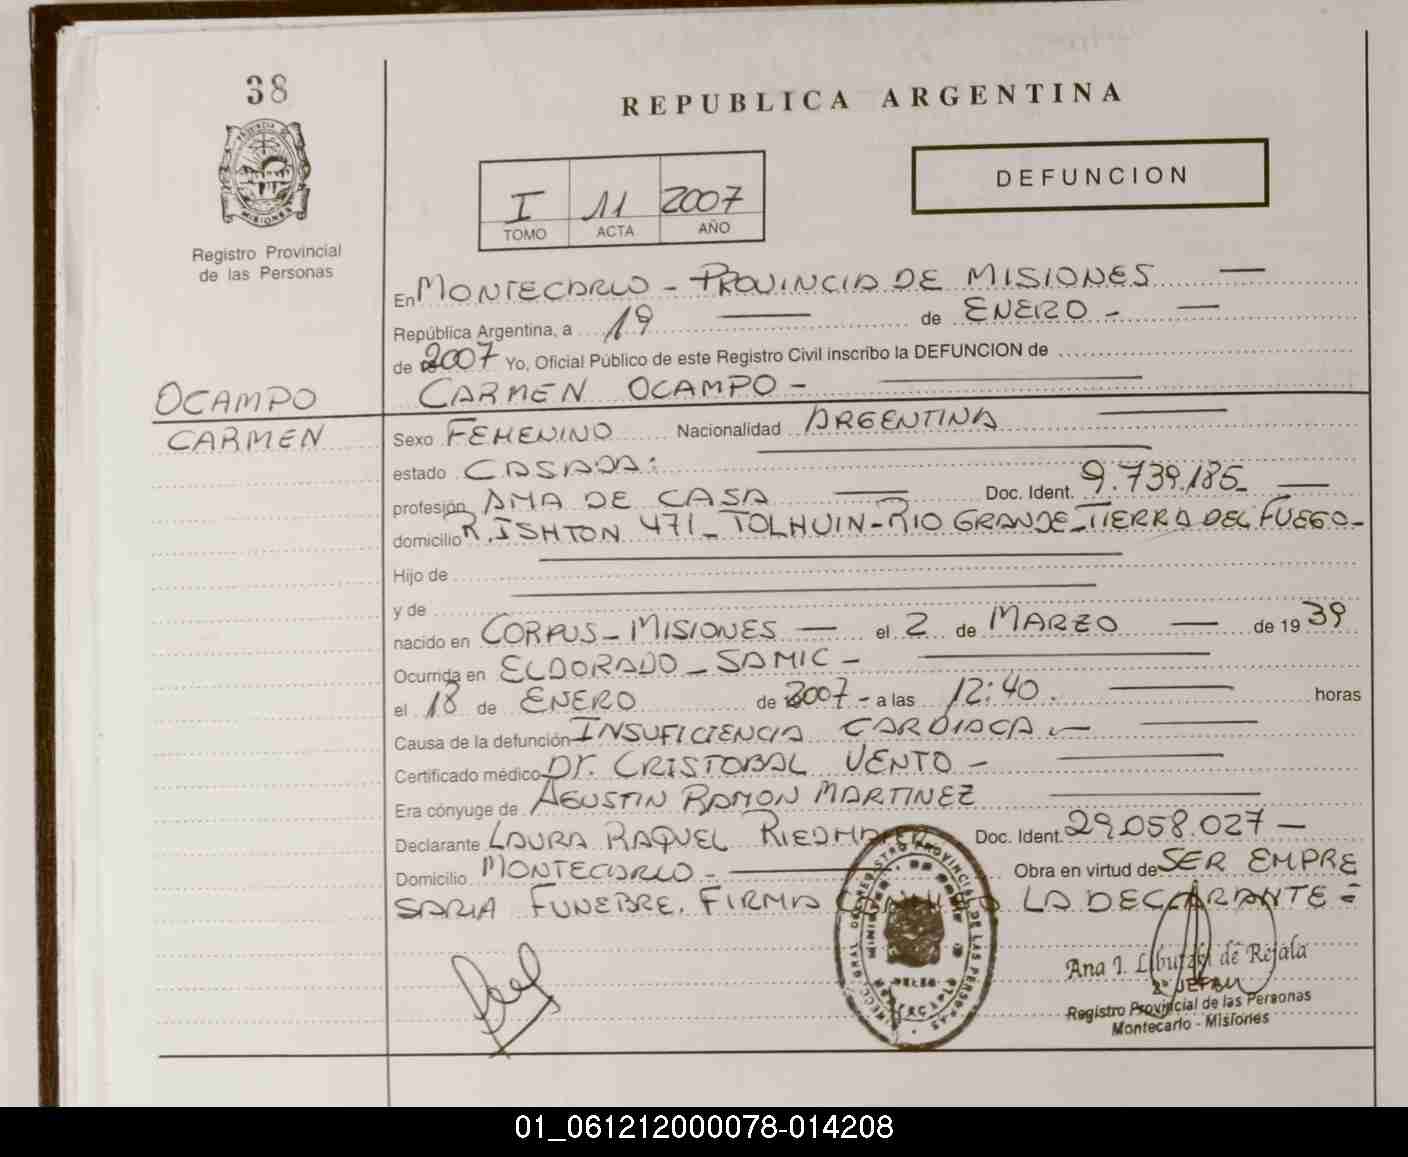 38
REPUBLICA ARGENTINA
PROVINCIA DE
MISIONES
DEFUNCION
I 11 2007
TOMO ACTA AÑO
Registro Provincial
de las Personas
En MONTECARLO - PROVINCIA DE MISIONES —
República Argentina, a 19 — de ENERO -. —
de 2007 Yo, Oficial Público de este Registro Civil inscribo la DEFUNCION de
OCAMPO
CARMEN OCAMPO - —
CARMEN
Sexo FEMENINO Nacionalidad ARGENTINA —
estado CASADA: —
profesión AMA DE CASA — Doc. Ident. 9.739.185- —
domicilio R. ISHTON 471_ TOLHUIN-RIO GRANDE-TIERRA DEL FUEGO-
Hijo de —
y de —
nacido en CORPUS-MISIONES — el 2 de MARZO — de 19 39
Ocurrida en ELDORADO - SAMIC - —
el 18 de ENERO de 2007 - a las 12:40. — horas
Causa de la defunción INSUFICIENCIA CARDIACA.— —
Certificado médico Dr. CRISTOBAL VENTO - —
Era cónyuge de AGUSTIN RAMON MARTINEZ —
Declarante LAURA RAQUEL Doc. Ident. 29.058.027 —
Domicilio MONTECARLO - — Obra en virtud de SER EMPRE
SARIA FUNEBRE. FIRMA LA DECLARANTE =
Ana I. de Rejala
2º JEFA
Registro Provincial de las Personas
Montecarlo - Misiones
01_061212000078-014208